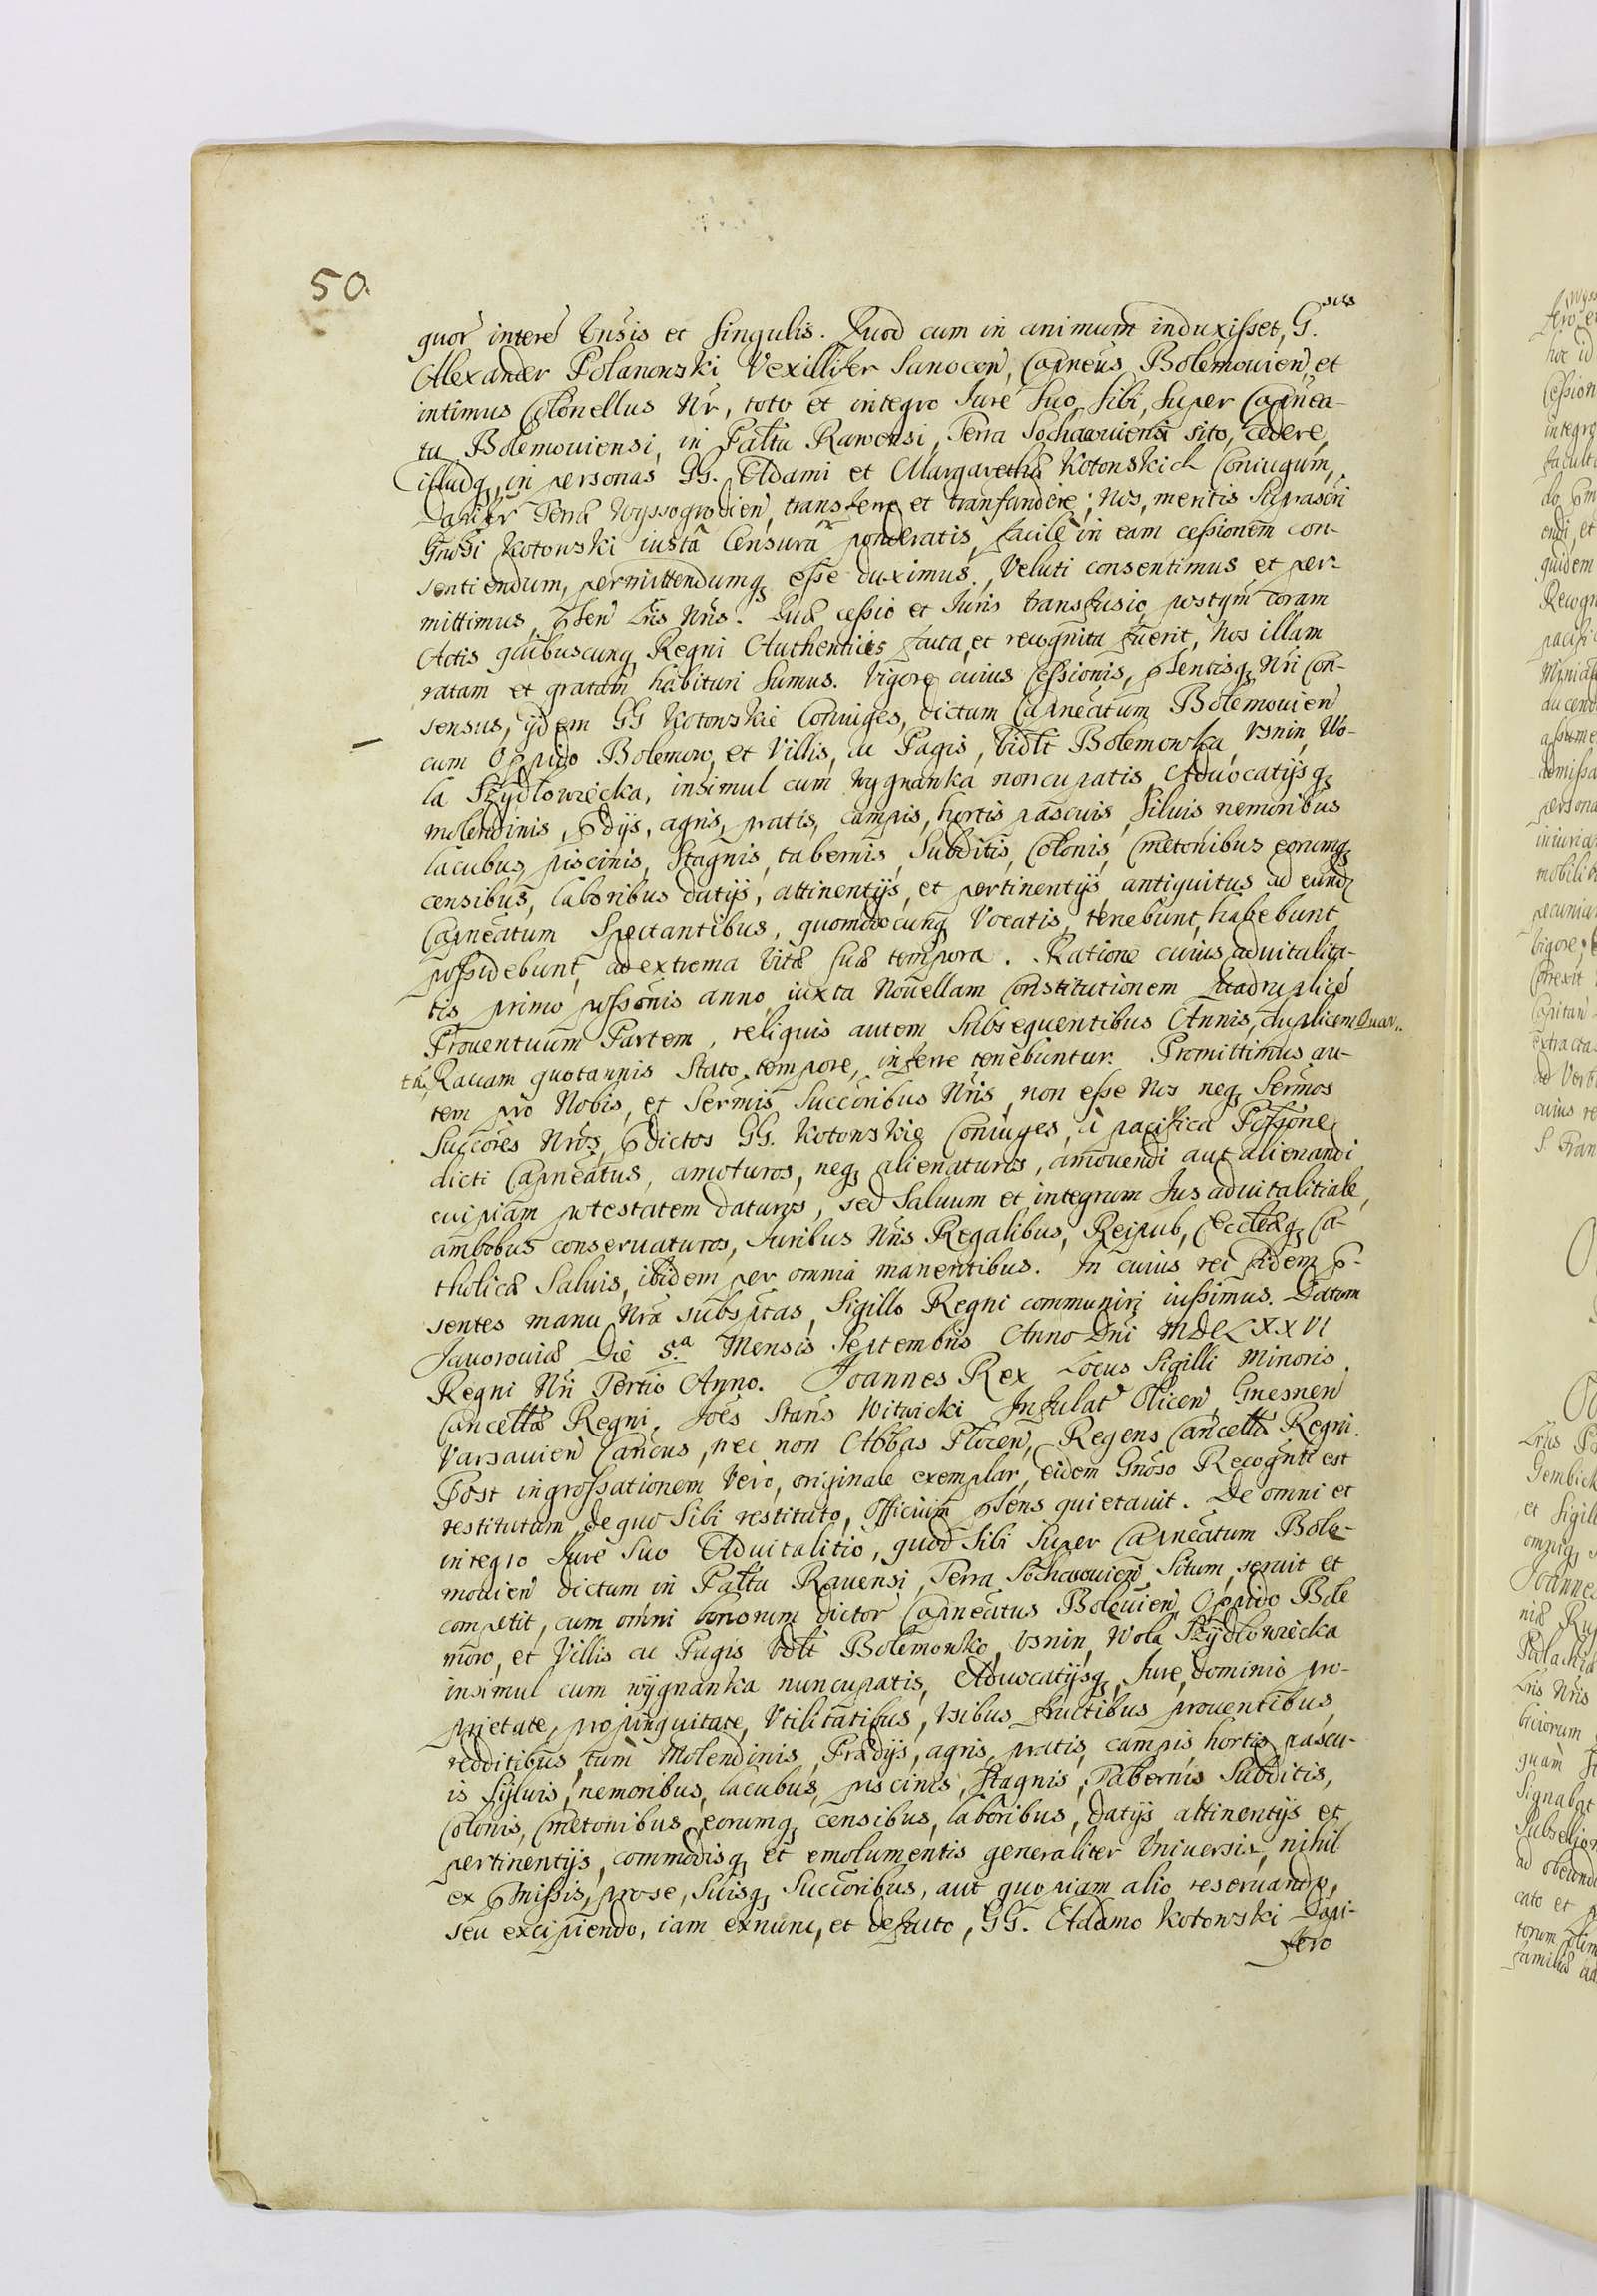 50.
quor̃ intere͂ Vnsis et singulis. Quod cum in animum induxisset, G.sus
Alexander Polanowski Vexillifer Sanocen̄, Capneus Bolemouien̄, et
intimus Colonellus Nr̃, toto et integro Jure Suo, Sibi, Super Capnea-
tu Bolemouiensi, in Palt̃u Rawensi, Terra Sochaouiensi sito, cedere,
illudq, in personas GG. Adami et Margarethæ Kotowskich Coniugum,
Dapifr̃ Terræ Wyssogrodien̄, transferre et transfundere; Nos, meritis Suprascri
Gnosi Kotowski iusta Censura ponderatis, facile in eam cessionem con-
sentiendum, permittendumq esse duximus. Veluti consentimus et per-
mittimus, p̃sen̄ Lr̃is Nr̃is. Quæ cessio et Juris transfusio, postqm̃ coram
Actis quibuscunq Regni Authenticis facta, et recognita fuerit, Nos illam
ratam et gratam habituri sumus. Vigore cuius Cessionis, p̃sentisq Nr̃i Con-
sensus, ijdem GG Kotowskie Coniuges, dictum Capneatum Bolemouien̄
cum Oppido Bolemow, et Villis, ac Pagis, vidlt Bolemowka, Vsnin, Wo-
la Szydłowiecka, insimul cum Wygnanka noncupatis, Aduocatijsq
molendinis, p̃dijs, agris, pratis, campis, hortis pascuis, Siluis nemoribus
lacubus, piscinis, Stagnis, tabernis, Subditis, Colonis, Cmetonibus eorumq
censibus, laboribus datijs, attinentijs, et pertinentijs, antiquitus ad eund
Capneatum Spectantibus, quomodocunq Vocatis, tenebunt, habebunt,
possidebunt, ad extrema Vitæ suæ tempora. Ratione cuius aduitalita-
tis primo possonis anno, iuxta Nouellam Constitutionem Quadruplice
Prouentuum Partem, reliquis autem Subsequentibus Annis, duplicem Quar-
ta, Rauam quotannis Stato tempore, inferre tenebuntur. Promittimus au-
tem pro Nobis, et Sermis Succoribus Nr̃is, non esse Nos neq Sermos
Succores Nr̃os, p̃dictos GG. Kotowskie Coniuges, à pacifica Possone
dicti Capneatus, amoturos, neq alienaturos, amouendi aut alienandi
cuipiam potestatem daturos, sed Saluum et integrum Jus aduitalitiale,
ambobus conseruaturos, Juribus Nr̃is Regalibus, Reipub, Ecclæq Ca-
tholicæ Saluis, ibidem per omnia manentibus. In cuius rei fidem p̃-
sentes manu Nr̃a subsptas, Sigillo Regni communiri iussimus. Datum
Jauorouiæ Die 8.a Mensis Septembris Anno Dni MDCLXXVI
Regni Nr̃i Tertio Anno. Joannes Rex Locus Sigilli Minoris
Cancellæ Regni. Joes Stans Witwicki Infulat̃ Olicen̄, Gnesnen̄
Varsauien̄ Cancus, nec non Abbas Plocen̄, Regens Cancellæ Regni.
Post ingrossationem Vero, originale exemplar, eidem Gnoso Recogñti est
restitutum, de quo Sibi restituto, Officium p̃sens quietauit. De omni et
integro Jure Suo Aduitalitio, quod Sibi Super Capneatum Bole-
mouien̄ dictum in Palt̃u Rauensi, Terra Sochaouien̄ Situm, seruit et
competit, cum omni bonorum dictor̃ Capneatus Boleuien̄, Oppido Bole
mow, et Villis ac Pagis vidlt Bolemowko, Vsnin, Wola Szydłowiecka
insimul cum wygnanka nuncupatis, Aduocatijsq, Jure, Dominio pro-
prietate, propinquitate, Vtilitatibus, Vsibus fructibus prouentibus,
redditibus, tum Molendinis, Prædijs, agris, pratis, campis hortis pascu-
is Syluis, nemoribus, lacubus, piscinis, Stagnis, Tabernis Subditis,
Colonis, Cmetonibus, eorumq censibus, laboribus, datijs, attinentijs et
pertinentijs, commodisq et emolumentis generaliter Vniuersis, nihil
ex p̃missis, pro se, Suisq Succoribus, aut quopiam alio reseruando,
seu excipiendo, iam exnunc, et defacto, GG. Adamo Kotowski Dapi-
fero